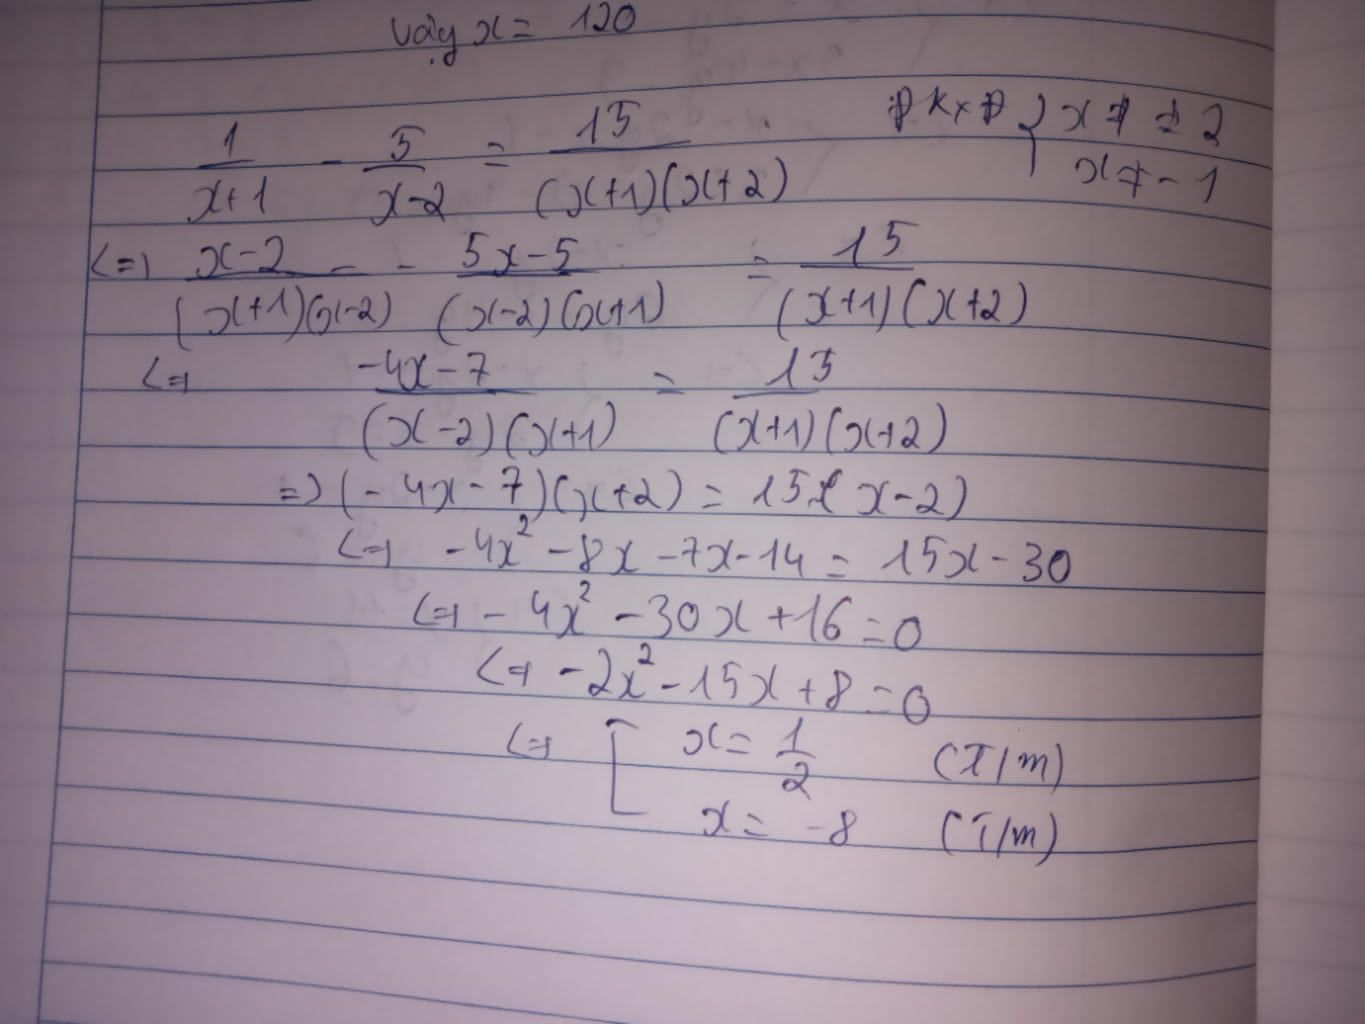 vậy x = 120
1/(x+1) - 5/(x-2) = 15/((x+1)(x+2)) ĐKXĐ { x ≠ ±2
x ≠ -1
<=> (x-2)/((x+1)(x-2)) - (5x-5)/((x-2)(x+1)) = 15/((x+1)(x+2))
<=> (-4x-7)/((x-2)(x+1)) = 15/((x+1)(x+2))
=> (-4x-7)(x+2) = 15(x-2)
<=> -4x² - 8x - 7x - 14 = 15x - 30
<=> -4x² - 30x + 16 = 0
<=> -2x² - 15x + 8 = 0
<=> [ x = 1/2 (T/m)
x = -8 (T/m)